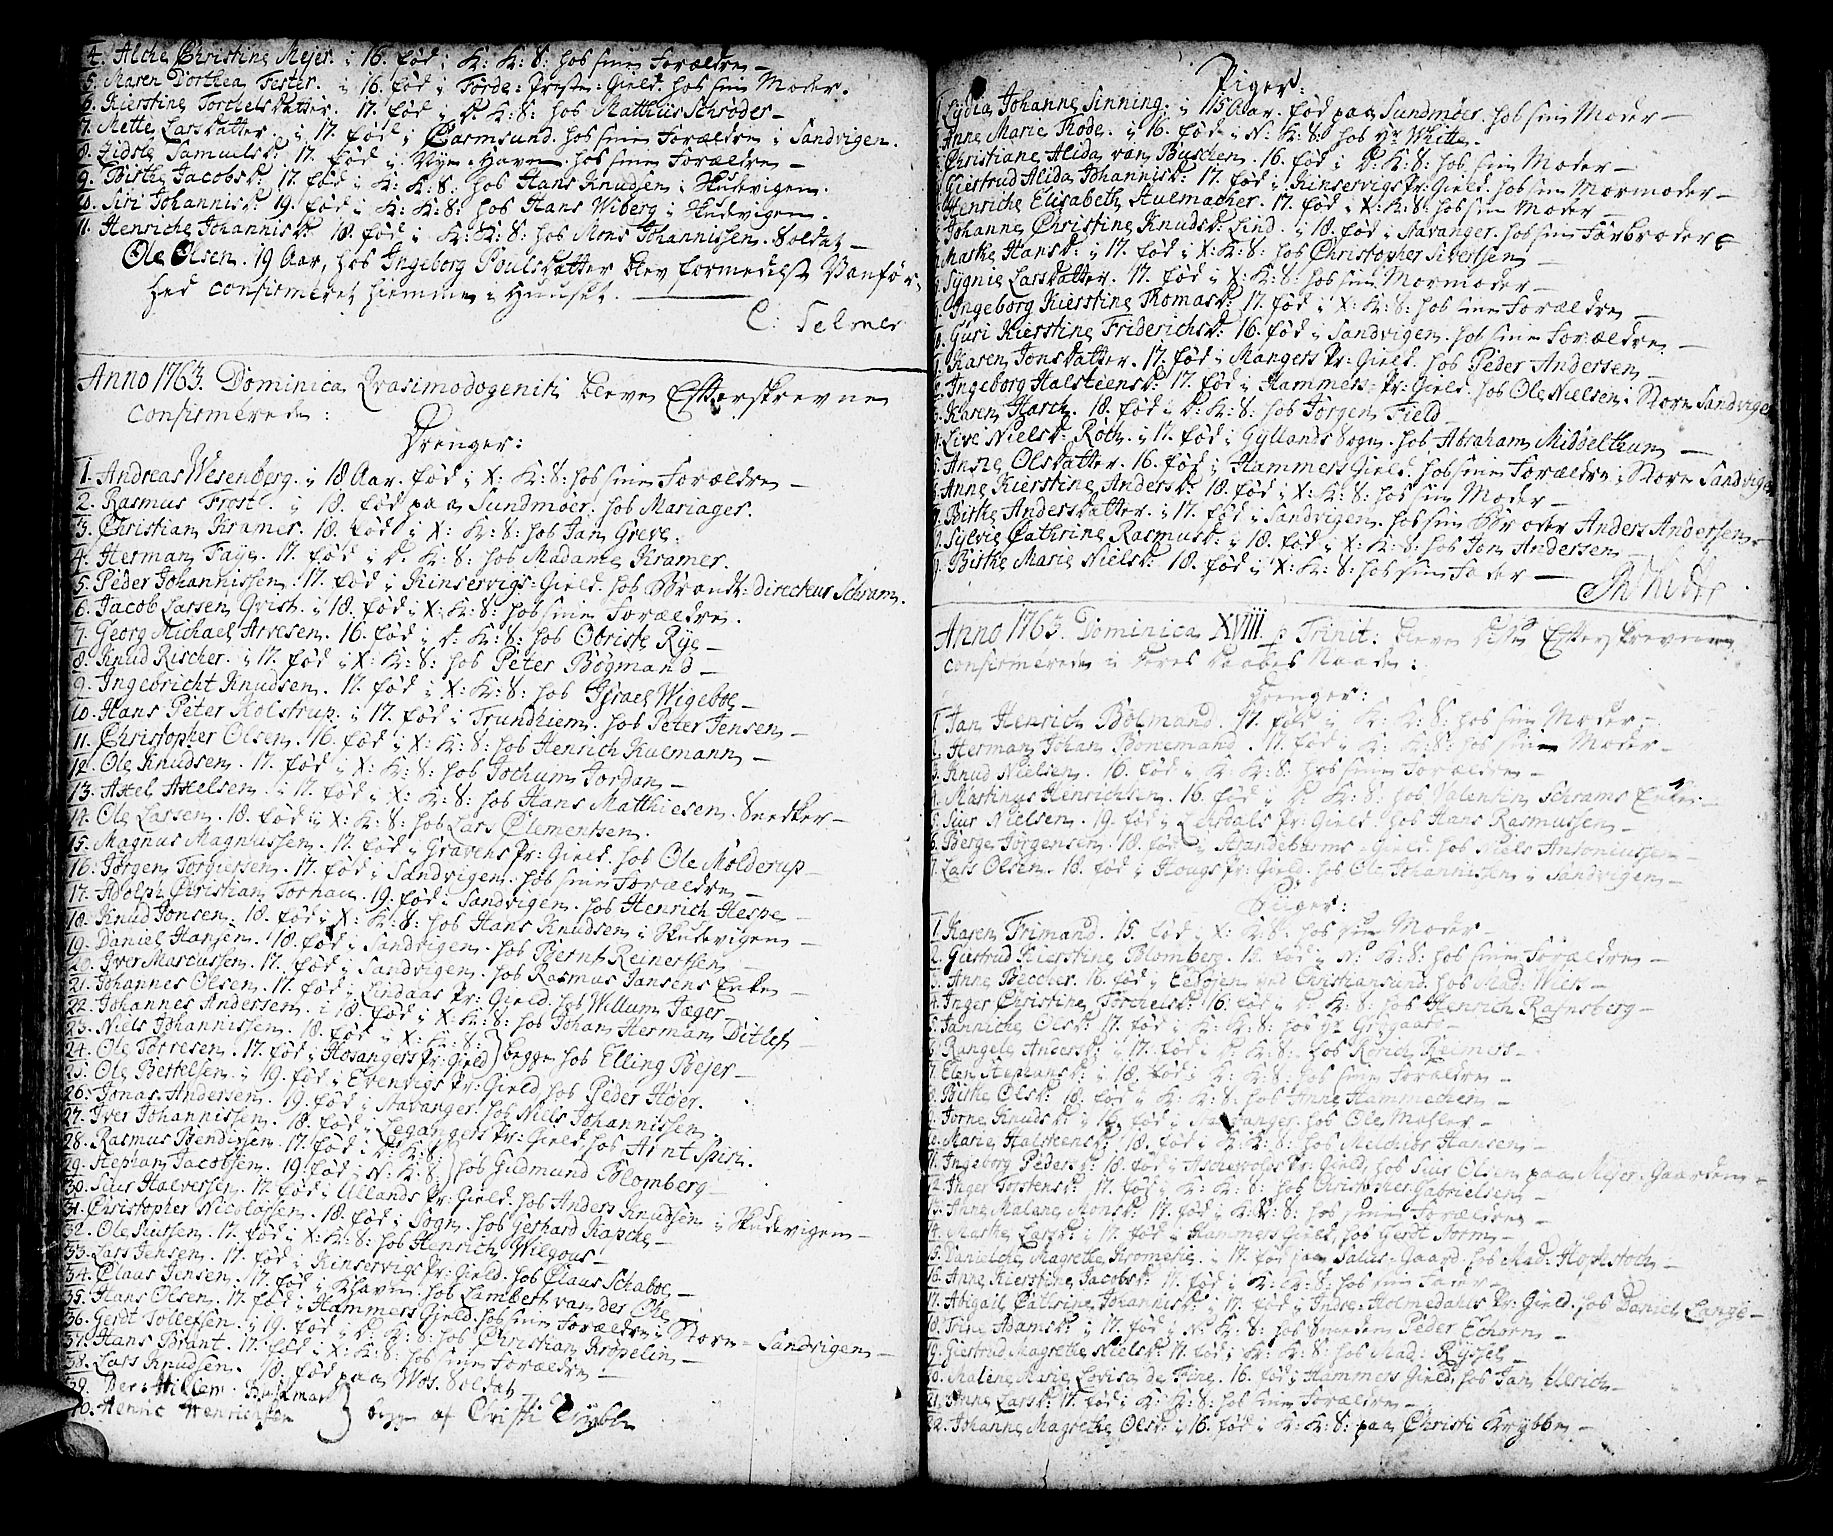 4. Alche Christine Mejer. i 16. fød i K: K: S: hos sine Forældre —
5. Maren Dorthea Fester. i 16. fød i Førde: Præste: Gield. hos sin Moder.
6. Kierstine Torchelsdatter. 17. fød i D. K: S: hos Matthius Schrøder —
7. Mette Larsdatter. i 17. fød i Carmsund. hos sine Forældre i Sandvigen.
8. Zidsle Samuelsd: 17. fød i Nye-Havn. hos sine Forældre —
9. Birthe Jacobsd: 17. fød i K: K: S: hos Hans Knudsen i Skudevigen.
10. Siri Johannisd: 19. fød i K: K: S: hos Hans Wiberg i Skudevigen.
11. Henriche Johannisd: 18. fød i K: K: S: hos Mons Johannissen. Soldat —
Ole Olsen. 19 Aar, hos Ingeborg Poulsdatter blev formedelst Vanfør-
hed confirmeret hiemme i Huuset.
C: Selmer
Anno 1763. Dominica Qvasimodogeniti bleve Efterskrevne
confirmerede:
Drenger:
1. Andreas Wesenberg. i 18 Aar. fød i X: K: S: hos sine Forældre —
2. Rasmus Frost. i 18. fød paa Sundmøer. hos Mariager.
3. Christian Kramer. 18. fød i X: K: S: hos Jan Greve.
4. Herman Faye. 17. fød i D. K: S: hos Madame Kramer.
5. Peder Johannissen. 17. fød i Kinservigs: Gield. hos Brandt: Directeur Schram.
6. Jacob Larsen Qvist. i 18. fød i X: K: S: hos sine Forældre.
7. Georg Michael Arvesen. 16. fød i D: K: S: hos Obriste Rye —
8. Knud Rischer. i 17. fød i X: K: S: hos Peter Bøgmand —
9. Ingebricht Knudsen. 17. fød i X: K: S: hos Israel Wigeboe —
10. Hans Peter Holstrup. i 17. fød i Trundhiem. hos Peter Jensen —
11. Christopher Olsen. 16. fød i X: K: S: hos Henrich Kulmann —
12. Ole Knudsen. 17. fød i X: K: S: hos Jochum Jordan —
13. Axel Axelsen. i 17. fød i X: K: S: hos Hans Matthiesen. Snedker —
14. Ole Larsen. 18. fød i X: K: S: hos Lars Clementsen.
15. Magnus Magnussen. 17. fød i Gravens Pr: Gield. hos Ole Molderup
16. Jørgen Torgiersen. 17. fød i Sandvigen. hos sine Forældre —
17. Adolph Christian Tornau. 19. fød i Sandvigen. hos Henrich Hespe —
18. Knud Jonsen. 18. fød i X: K: S: hos Hans Knudsen i Skudevigen —
19. Daniel Hansen. 18. fød i Sandvigen. hos Bernt Reinertsen —
20. Iver Marcussen. 17. fød i Sandvigen. hos Rasmus Jansens Enke —
21. Johannes Olsen. 17. fød i Lindaas Pr: Gield. hos Willum Jæger
22. Johannes Andersen. i 18. fød i X: K: S: hos Johan Herman Ditlefs —
23. Niels Johannissen. 18. fød i X: K: S:
24. Ole Torresen. 17. fød i Hosangers Pr: Gield } begge hos Elling Bejer —
25. Ole Bertelsen. i 19. fød i Evenvigs Pr: Gield hos Peder Høer.
26. Jonas Andersen. 19. fød i Stavanger. hos Niels Johannissen.
27. Iver Johannissen. 18. fød i Legangers Pr: Gield. hos Arnt Spirn.
28. Rasmus Bendixen. 17. fød i D: K: S:
29. Stephan Jacobsen. 19. fød i N: K: S: } hos Gudmund Blomberg —
30. Siur Halversen. 17. fød i Ullands Pr: Gield. hos Anders Knudsen i Skudevigen —
31. Christopher Nicolassen. 18. fød i Sogn. hos Gerhard Kapche —
32. Ole Siursen. 17. fød i X: K: S: hos Henrich Wilgous —
33. Lars Jensen. 17. fød i Kinservigs Pr: Gield. hos Claus Schaboe —
34. Claus Jensen. 17. fød i Khavn. hos Lambert van der Ohe —
35. Hans Olsen. 17. fød i Hammers Gield. hos sine Forældre i Store-Sandvigen —
36. Gerdt Tollefsen. i 19. fød i D: K: S: hos Christian Krøpelin —
37. Hans Brant. 17. fød i X: K: S: hos sine Forældre —
38. Lars Knudsen. 18. fød paa Wos. Soldat
39. Willem
40. Henric Henrichsen } begge af Christi Krybbe
Piger:
1. Lydia Johanne Sinning. i 15 Aar. fød paa Sundmøer. hos sin Moder —
Anne Marie Thode. i 16. fød i N. K: S: hos Hr. Witte.
Christiane Alida van Buschen. 16. fød i D: K: S: hos sin Moder —
Giertrud Alida Johannisd: 17. fød i Kinservigs Pr: Gield. hos sin Mormoder —
Henriche Elisabeth Huemacher. 17. fød i X: K: S: hos sin Moder —
Johanne Christine Knudsd: Lind. i 18. fød i Stavanger. hos sin Farbroder
Marthe Hansd: i 17. fød i X: K: S: hos Christopher Sivertsen —
Sygnie Larsdatter. 17. fød i X: K: S: hos sin Mormoder —
Ingeborg Kierstine Thomasd: 17. fød i X: K: S: hos sine Forældre —
Guri Kierstine Friderichsd: 16. fød i Sandvigen. hos sine Forældre —
Karen Jonsdatter. 17. fød i Mangers Pr: Gield. hos Peder Andersen —
Ingeborg Halsteensd: 17. fød i Hammers: Pr: Gield. hos Ole Nielsen i Store Sandvigen
Karen Harch. 18. fød i D: K: S: hos Jørgen Field
Live Nielsd: Roth. i 17. fød i Gyllands Sogn. hos Abraham Middelthun —
Ansie Olsdatter. 16. fød i Hammers Gield. hos sine Forældre i Store Sandvigen
Anne Kierstine Andersd: 18. fød i X: K: S: hos sin Moder —
Birthe Andersdatter. i 17. fød i Sandvigen. hos sin Broder Anders Andersen —
Sylvie Cathrine Rasmusd: i 18. fød i X: K: S: hos Jon Andersen —
Birthe Marie Nielsd: 18. fød i X: K: S: hos sin Fader —
Anno 1763. Dominica XVIII. p Trinit: bleve disse Efterskrevne
confirmerede i deres Daabes Naade:
Drenger:
1. Jan Henrich Bolmand. 17. fød i K: K: S: hos sin Moder —
2. Herman Johan Bonemand. 17. fød i K: K: S: hos sin Moder —
3. Knud Nielsen. 16. fød i K: K: S: hos sine Forældre —
4. Martinus Henrichsen. 16. fød i D: K: S: hos Valentin Schrams Enke. —
5. Siur Nielsen. 19. fød i Lerdals Pr: Gield. hos Hans Rasmussen —
6. Berge Jørgensen. 18. fød i Strandebarms-Gield. hos Niels Antoniussen —
7. Lars Olsen. 18. fød i Hougs Pr: Gield. hos Ole Johannissen i Sandvigen —
Piiger:
1. Karen Frimand. 15. fød i X: K: S: hos sin Moder —
2. Giertrud Kierstine Blomberg. 15. fød i N: K: S: hos sine Forældre —
3. Anne Beccher. 16. fød i Eedøen ved Christiansund. hos Mad: Wich —
4. Inger Christine Torchelsd: 16. fød i D: K: S: hos Henrich Rafnsberg —
5. Janniche Olsd: 17. fød i K: K: S: hos Hr. Grygaar —
6. Rangele Andersd: i 17. fød i D: K: S: hos Rorich Reimers —
7. Elen Stephansd: i 18. fød i K: K: S: hos sine Forældre —
8. Birthe Olsd: 18. fød i K: K: S: hos Anne Hammechen —
9. Jorne Knudsd: i 16. fød i Stavanger. hos Ole Mahler —
10. Marie Halsteensd: 18. fød i K: K: S: hos Melchior Hansen —
11. Ingeborg Pedersd: 18. fød i Aschevolds Pr: Gield. hos Siur Olsen paa Mejer-Gaarden —
12. Inger Torstensd: 17. fød i K: K: S: hos Christopher Gabrielsen —
13. Anne Malene Monsd: 17. fød i K: K: S: hos sine Forældre —
14. Marthe Larsd: 17. fød i Hammers Gield. hos Gerdt Torm —
15. Danielche Magrethe Kromethe. i 17. fød paa Salus-Gaard. hos Mad: Hopstoch —
16. Anne Kierstine Jacobsd: 17. fød i K: K: S: hos sin Fader —
17. Abigail Cathrine Johannisd: i 17. fød i Indre-Holmedahls Pr: Gield. hos Daniel Lange —
18. Trine Adamsd: i 17. fød i N: K: S: hos Smeden Peder Echorn —
19. Giertrud Magrethe Nielsd: 17. fød i K: K: S: hos Mad: Ryssel —
20. Malene Marie Lovisa de Fine. 16. fød i Hammers Gield. hos Jan Ulrich —
21. Anne Larsd: 17. fød i K: K: S: hos sine Forældre —
22. Johanne Magrethe Olsd: i 16. fød i K: K: S: paa Christi Krybbe —